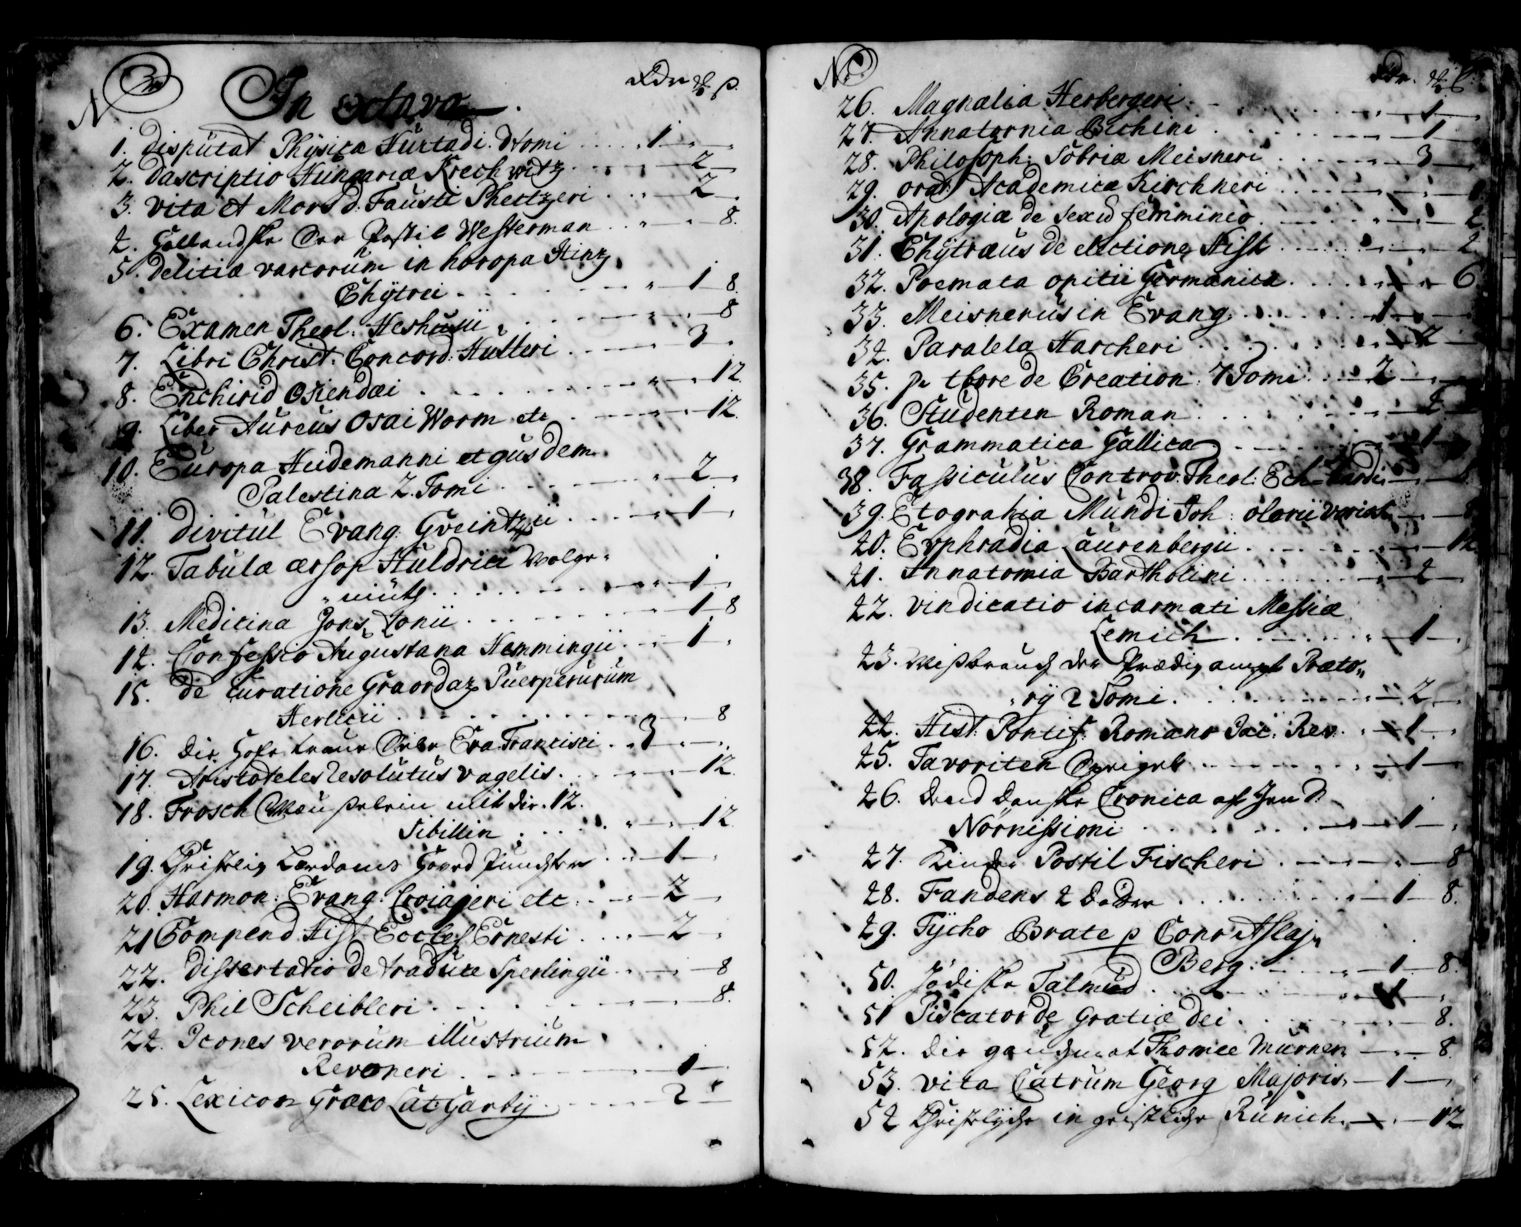 No In octavo. Rdr ₰ ß.
1. Disputat Physica Hurtadi. Homi 1
2. Dascriptio Hungariæ Krechwitz 2
3. Vita et Mors D. Fausti Pheitzeri 2
4. Hollandske Postil Westerman 8.
5. Delitiæ variorum in horopa Hintz
Chÿtrei 1 8.
6. Examen Theol: Heshusii 8
7. Libri Christ. Concord. Hutteri 3
8. Enchirid Osiendæi 12
9. Liber Aureus Osai Worm etc 12
10. Europa Heidemanni etgusdem
Palestina 2. Tomi 2
11. Divitül Evang 1
12. Fabulæ æsop Huldrici Wolge-
mütz 1
13. Medicina Jons. Lonii 1 8
14. Confessio Augustana Hemmingii 1
15. De Curatione Graordaz Puerperurum
Herlicii 8
16. Die Eva Francisci 3
17. Aristoteles resolutus vagelis 12
18. Frosch Meuselein mit der 12.
Sibillin 12
19. Christelig Lærdoms 1
20. Harmon: Evang: Croiajeri etc 2
21 Compend Hist Eccles Ernesti 2
22. Dissertatio de traduce Sperlingii 8
23. Phil Scheibleri 8
24. Icones verorum illustrium
Revsneri 1
25. Lexicon Græco Lat Garby 2
No Rdr. ₰ ß.
26. Magnalia Herbergeri 1
27. Annatomia Bichini 1
28. Philosoph: Sobria Meisneri 3
29. orat Academica Kirchneri
30. Apologia de sexu femmineo 2
31. Chÿtræus de elections Hist 2
32. Poemata opitii Germanica 6
33. Meisnerus in Evang. 1
34. Paralela Harcheri 2
35. de Creation. 7 Tomi 2
36. Studenten Roman 2
37. Grammatica Gallica 1
38. Fassiculus Controv. Theol: Echardi
39. Etograhia Mundi Joh: olorii variat
40. Evphradia Laurenbergii 12
41. Annatomia Bartholini 2
42. Vindicatio incarnati Messiæ
Lemich 1
43. Misbrauch der Prædigampt Præto-
rÿ 2 Tomi 2
44. Hist. Pontif. Romano Jac: Rev. 1
45. Favoriten 1
46. Dend Danske Cronica af Jon D.
Nornissioni 1
47. Kinder Postil Fischeri 8
48. Fandens 1 8.
49. Tÿcho Brate p Conr Aslaj
Berg: 1 8.
50. Jødiske Talmud 1
51 Piscator de Gratiæ dei 8.
52. Die Thomee Murner 8
53. Vita Catrum Georg Majoris 1
54 Christlyche in geistliche Runich 12